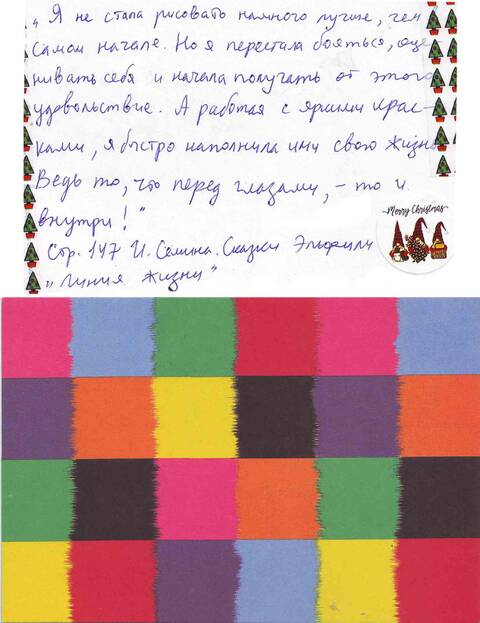 „Я не стала рисовать намного лучше, чем
самом начале. Но я перестала бояться, оце-
нивать себя и начала получать от этого
удовольствие. А работая с яркими крас-
ками, я быстро наполнила ими свою жизнь
Ведь то, что перед глазами, – то и
внутри!"
Стр. 147 И. Сёмина. Сказки Эльфики
„Линия жизни"
Merry Christmas